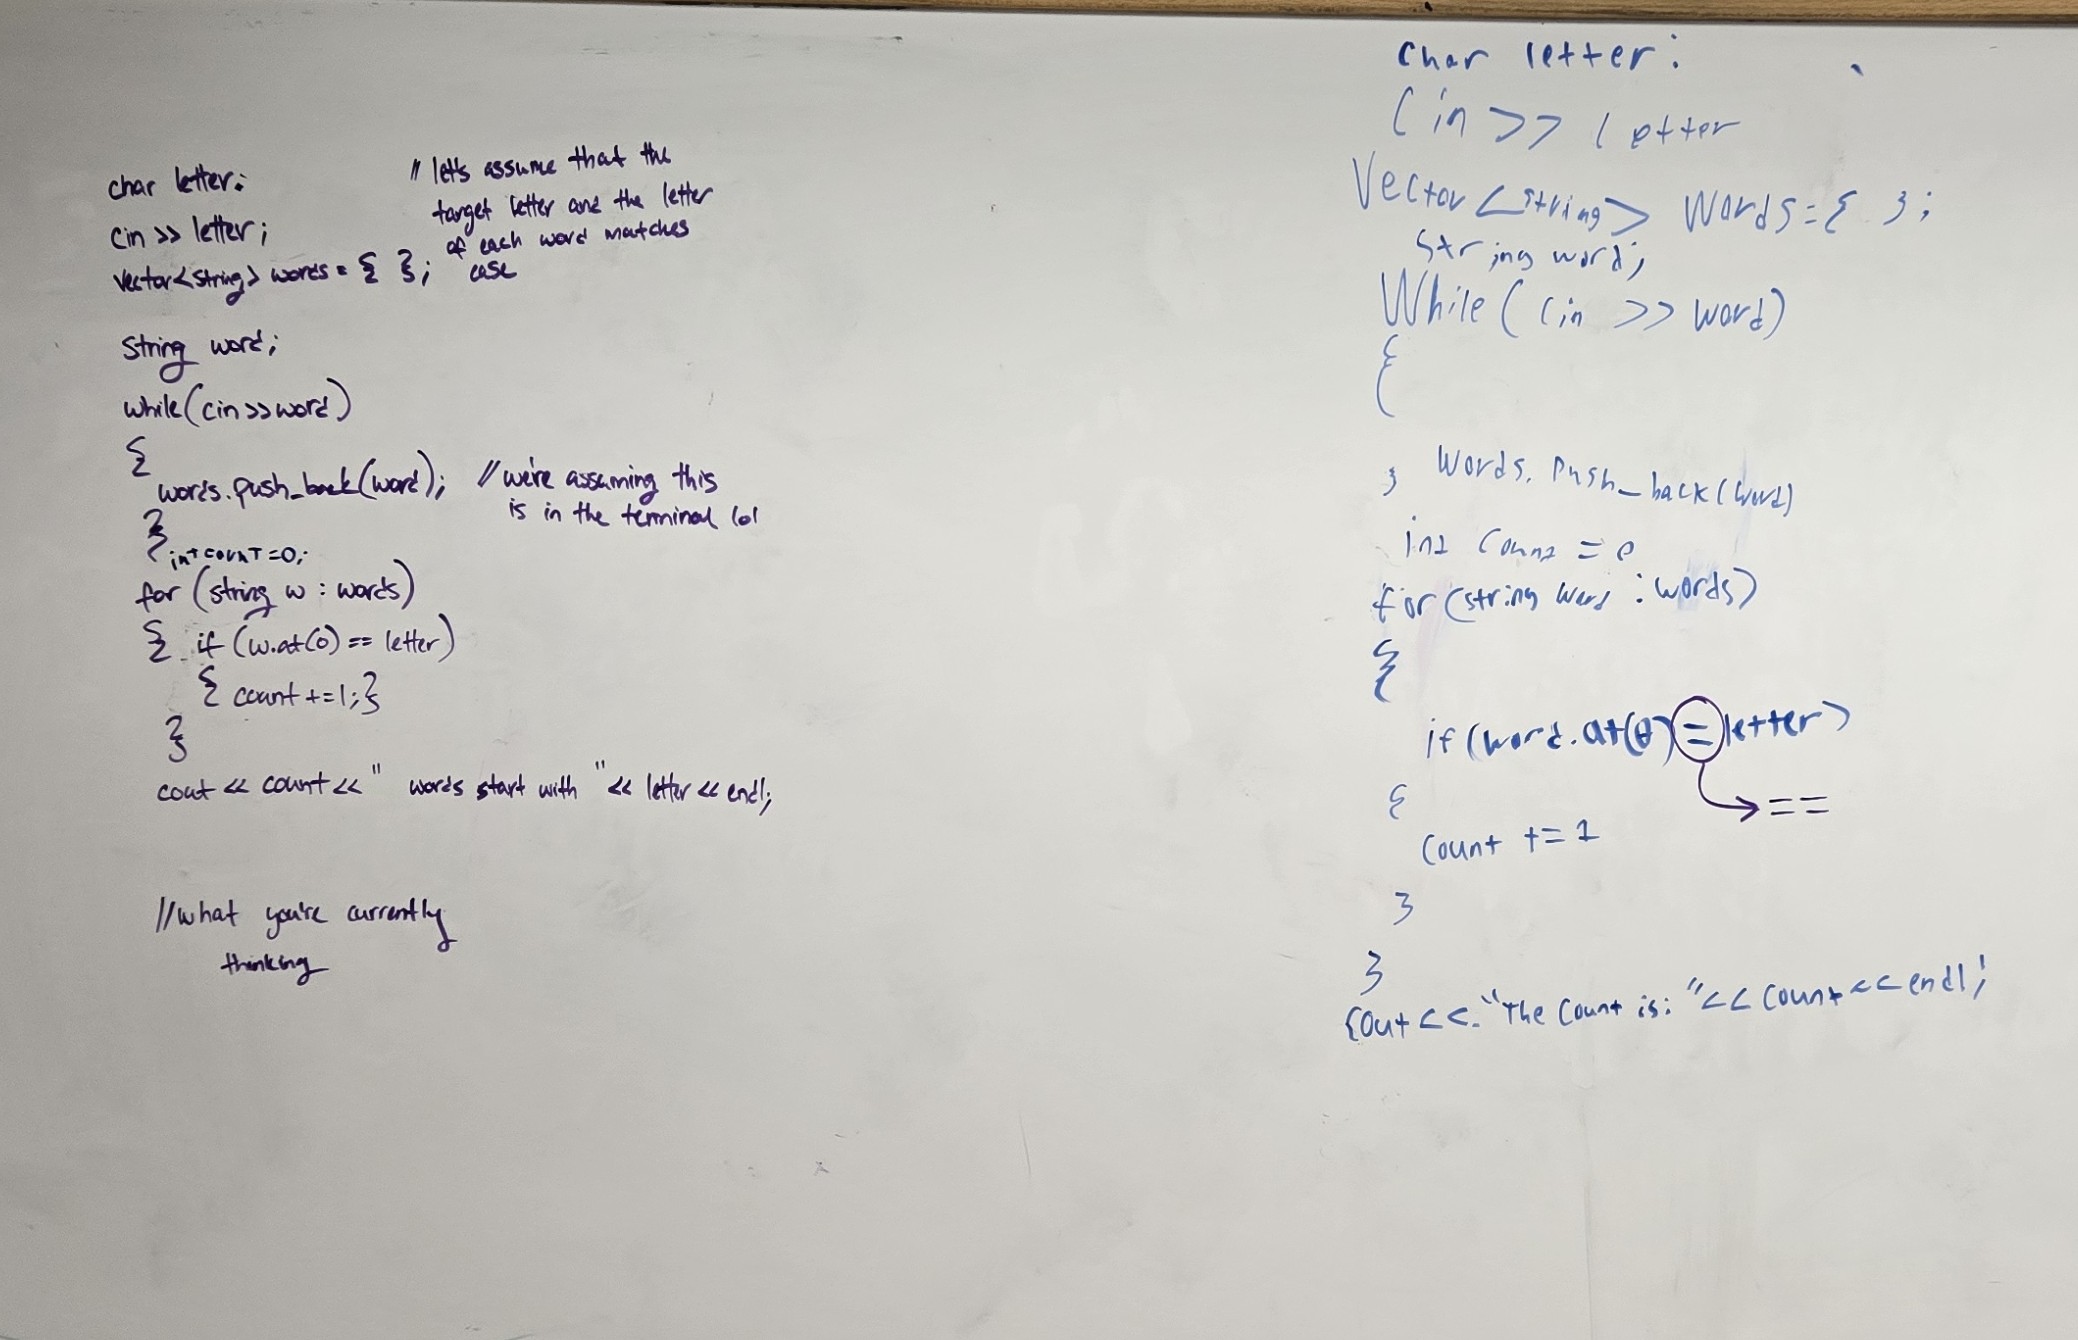 char letter:
cin >> letter;
vector<string> words = { };
// let's assume that the
target letter and the letter
of each word matches
case
string word;
while(cin>>word)
{
words.push_back(word); // we're assuming this
is in the terminal lol
}
int count=0;
for (string w : words)
{ if (w.at(0) == letter)
{ count +=1; }
}
cout << count << " words start with " << letter << endl;
//what you're currently
thinking
char letter:
Cin >> letter
Vector <string> words = { };
string word;
While ( Cin >> word)
{
} words. Push_back (word)
int Count = 0
for (string word : words)
{
if (word.at(0) = letter)
==
{
Count += 1
}
}
Cout << "The Count is: " << Count << endl;